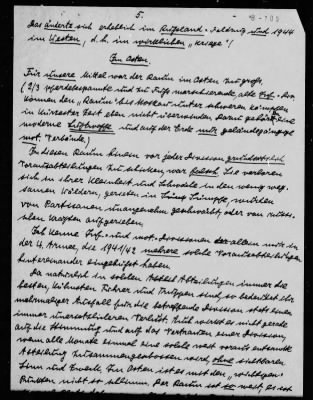 5.
Das änderte sich erheblich im Rußland-Feldzug und 1944
im Westen, d.h. im wirklichen "Kriege"!
Im Osten.
Für unsere Mittel war der Raum im Osten zu groß.
(2/3 pferdebespannte und zu Fuß marschierende, alte Inf.-Div.
können den "Raum" bis Moskau unter schweren Kämpfen
in kürzester Zeit eben nicht überwinden. Dazu gehört eine
moderne Luftwaffe und auf der Erde nur geländegängige
mot. Verbände.)
In diesen Raum hinein vor jeder Division grundsätzlich
Vorausabteilungen zu schicken, war falsch. Sie verloren
sich in ihrer Kleinheit und Schwäche in den wenig weg-
samen Wäldern, gerieten in Sümpfe, wurden
von Partisanen unangenehm geschwächt, oder von russi-
schen Kräften aufgerieben.
Ich kenne Inf.- und mot.-Divisionen vor allem auch in
der 4. Armee, die 1941/42 mehrere solche Vorausabteilungen
hintereinander eingebüßt haben.
Da natürlich in solchen Abteilungen immer die
besten, kühnsten Führer und Truppen sind, so bedeutet ihr
mehrmaliger Ausfall für die betreffende Division stets einen
immer unersetzlicheren Verlust. Auch wirkt es nicht gerade
auf die Stimmung und auf das Vertrauen einer Division,
wenn alle Monate einmal eine solche weit voraus entsandte
Abteilung zusammengeschossen wird, ohne sichtbaren
Sinn und Zweck. Im Osten ist es mit den "wichtigen"
Punkten nicht so schlimm. Der Raum ist so weit, es ist